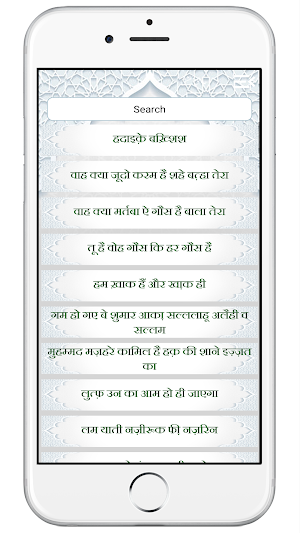 Search
हदाइक़े बख़्शिश
वाह क्या जूदो करम है शहे बत़्हा तेरा
वाह क्या मर्तबा ऐ ग़ौस है बाला तेरा
तू है वोह ग़ौस कि हर ग़ौस है
हम ख़ाक हैं और ख़ाक ही
गमं हो गए बे शुमार आका़ सल्ललाहू अलैंही व
सल्लम
मुह़म्मद मज़हरे कामिल है ह़क़ की शाने इ़ज़्ज़त
का
लुत्फ़ उन का आम हो ही जाएगा
लम याती नज़ीरूक फी़ नज़रिन